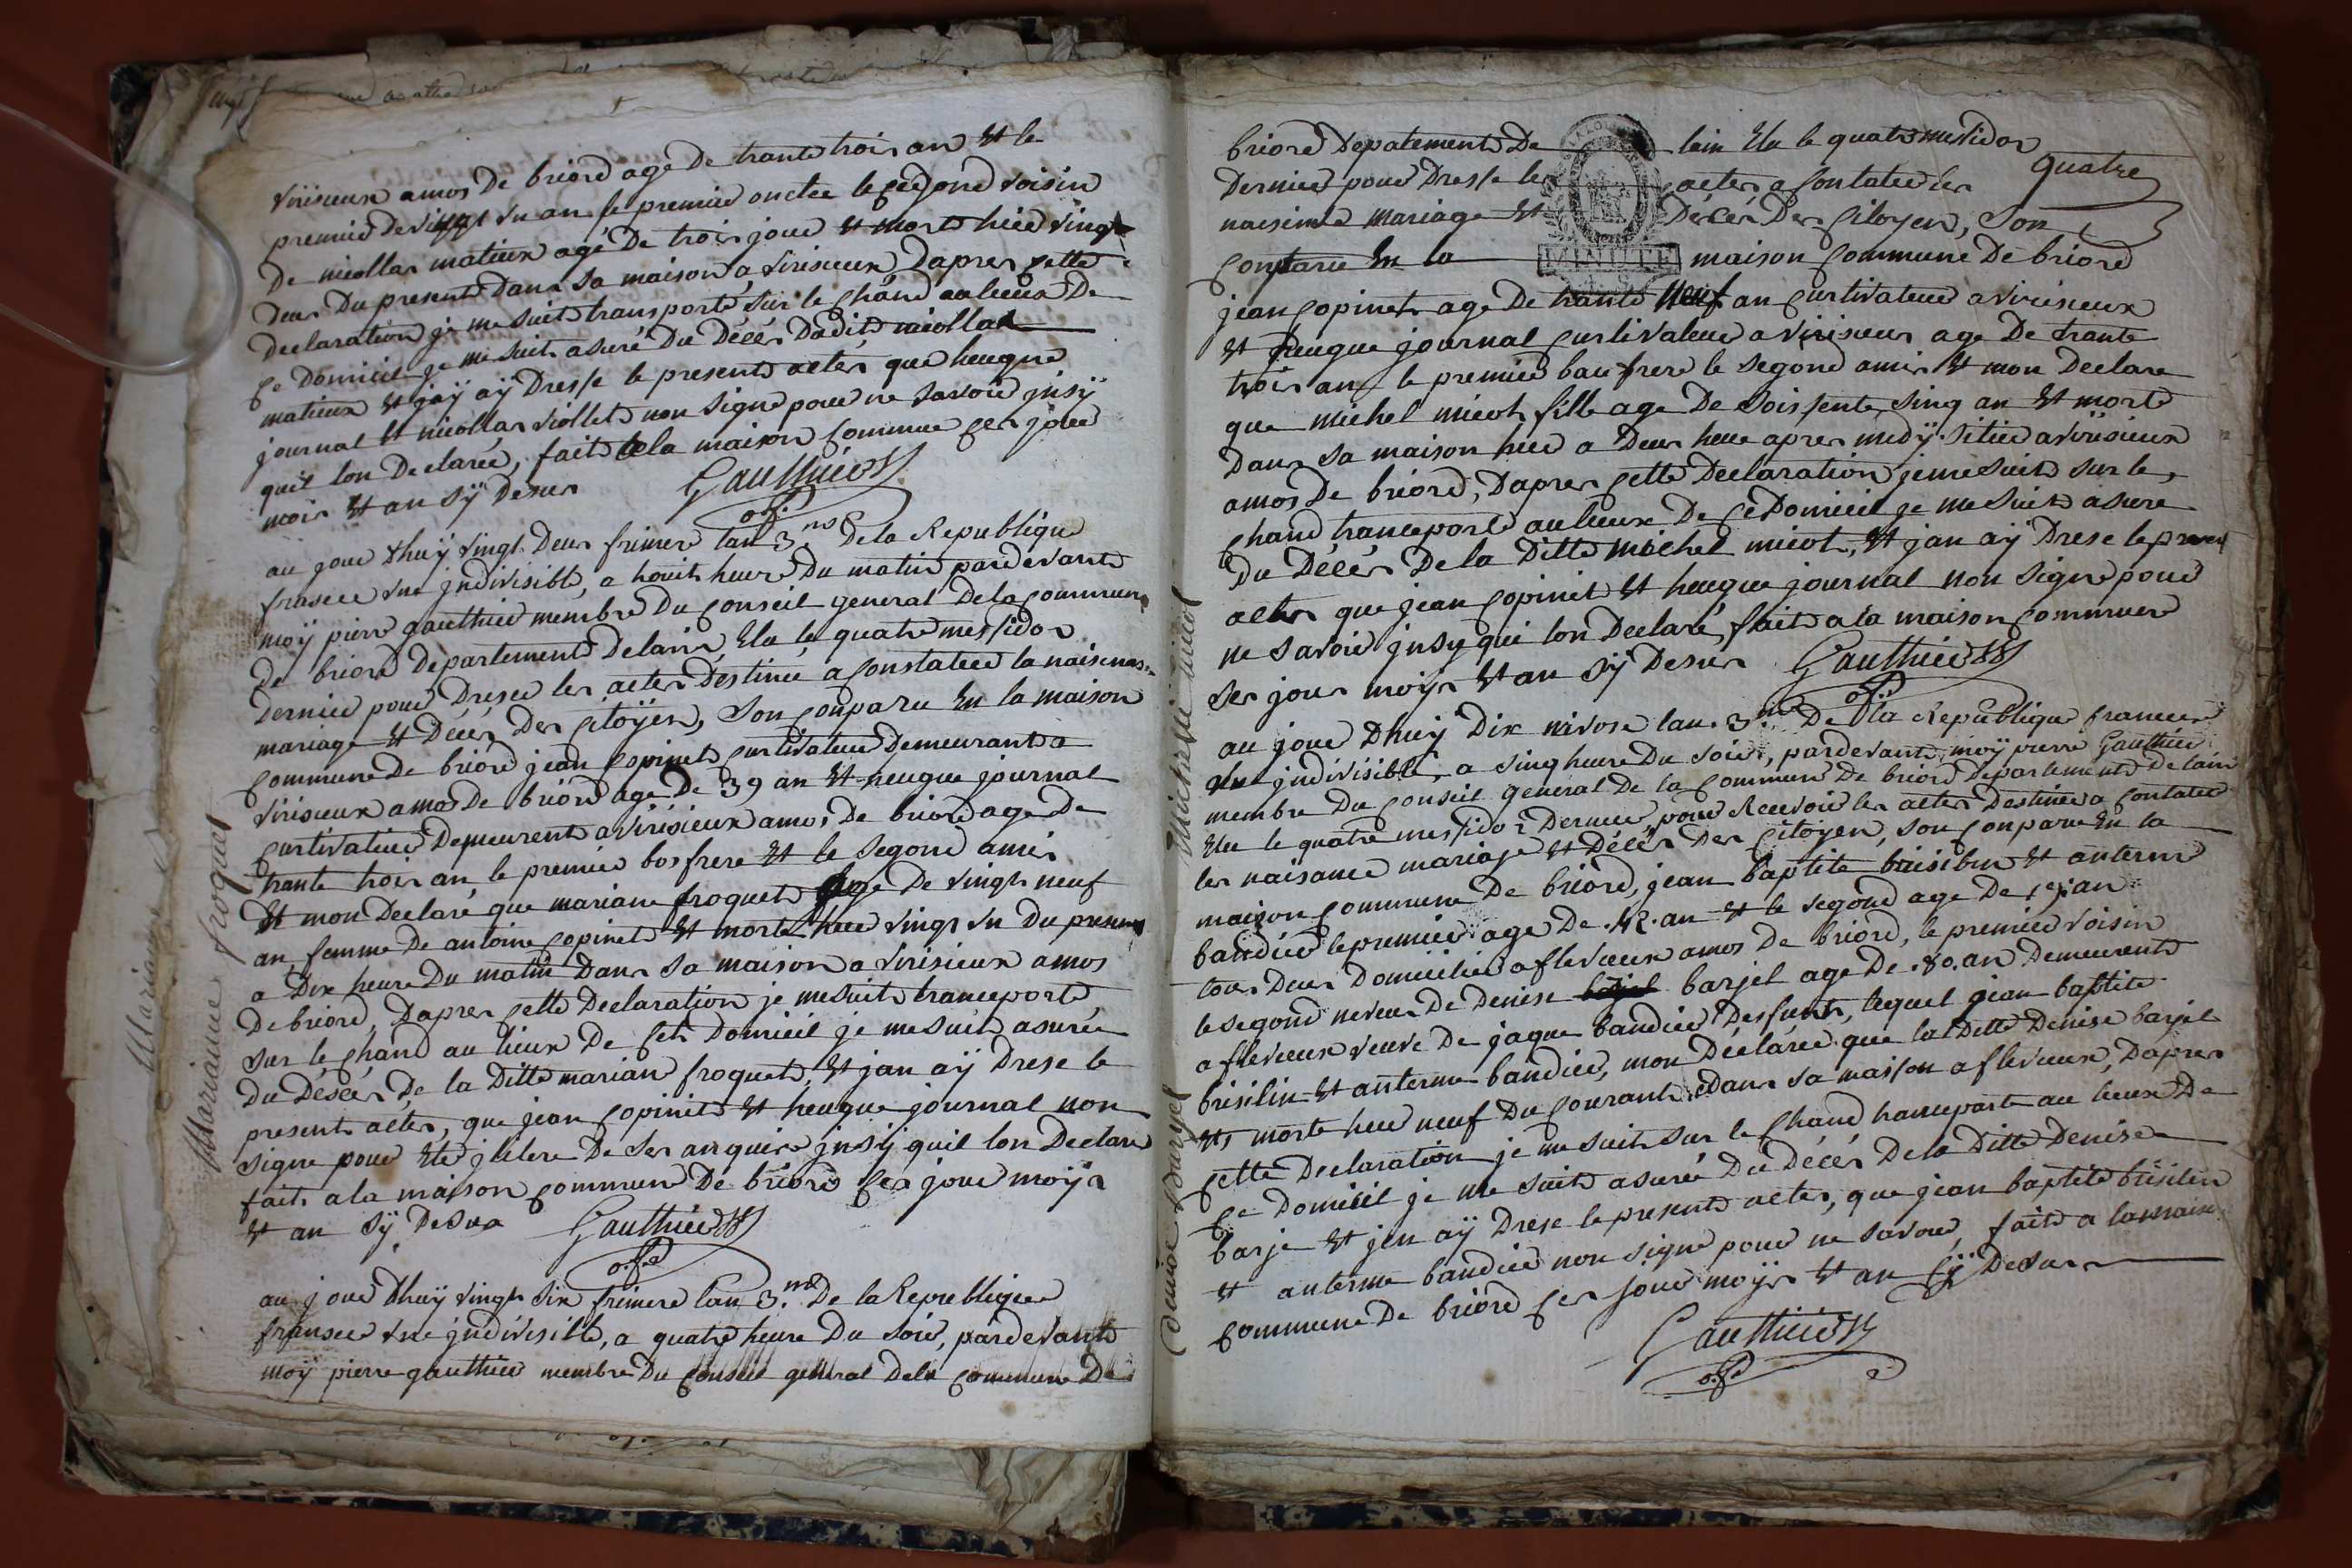 virisieux amos de briord agé de trante trois an et le
premier de vingt un an le premier onclee le segond voisin
de nicollas matieux agé de trois jour et mort hier vingt
deux du present dans sa maison a virisieux dapres cette
declaration je me suit transporté sur le chand au lieux de
ce domicil je me suit asuré du décés dudit nicollas
matieux et jay aÿ dresse le present actes que heugne
journal et nicollas viollet non signe pour ne savoir jnsÿ
quil lon declarée, fait a la maison commune ces jour
mois et an sÿ desus Gauthier
off
au jour dhuÿ vingt deux frimere lan 3.me de la Republique
fransee une jndivisible, a houit heure du matin pardevant
moÿ pierr gauthier membre du conseil general de la commune
de briord departement delain, Elu le quatre messidor
dernier pour dreser les actes destinée a constatee la naisenas
mariage et décés des citoÿen, son conparu en la maison
commune de briord jean copinet curtivateur demeurant a
virisieux amos de briord age de 39 an et heugue journal
curtivateur demeurent a virisieux amos de briord age de
trante trois an, le premier bos frere et le segond amis
Et mon declaré que mariane froquet age de vingt neuf
an femme de antoine copinet et morte hier vingt un du present
a dix heure du matin dans sa maison a virisieux amos
de briord, dapres cette declaration je me suit tranceporté
sur le chand au lieux de cet domicil je me suit asurée
du déces de la ditte marian froquet, et jan aÿ drese le
present actes, que jean copinet et heugue journal non
signe pour ete jlitere de ses anquire jnsÿ quil lon declare
fait a la maison commune de briord ces jour moÿs
et an sÿ desus Gauthier
off
au jour dhuÿ vingt six frimere lan 3.me de la Republique
fransee une jndivisible, a quatre heure du soir, pardevant
moÿ pierre gauthier membre du conseil general dela commune de
Marianne froquet
briord depatement de lain Elu le quatre mesidor
quatre
dernier pour dresse les actes a contatee les
naisince mariage et décés des citoyen, son
conparu en la maison commune de briord
MINUTE
jean copinet age de trante neuf an curtivateur a virisieux
et heugue journal curtivateur a virisieux age de trante
trois an le premier bau frere le segond amis et mon declare
que michel micot fille age de soissente sing an et morte
dans sa maison hier a deux heure apres midÿ sitiée a virisieux
amos de briord, dapres cette declaration je me suit sur le
chand tranceporté au lieux de ce domicil je me suit asure
du décés de la ditte michel micot, et jan aÿ drese le present
actes que jean copinet et heugue journal non signe pour
ne savoir jnsy qui lon declaré, fait a la maison commune
ses jour moÿs et an sÿ desus Gauthier
off
au jour dhuÿ dix nivose lan 3.me de la Republique francee
une jndivisible, a sing heure du soir, pardevant moÿ pierre Gauthier
membre du conseil general de la commune de briord departement de lain
Elu le quatre messidor dernier pour Recevoir les actes destinée a contatee
les naisance mariage et décés des citoyen, son conparu en la
maison commune de briord, jean baptite brisilin et anterme
bandier le premier age de 42 an et le segond age de an
tous deux domicilier a flevieux amos de briord, le premier voisin
le segond neveu de denise barjel age de 80 an demeurent
a flevieux veuve de jaque bandier desfunt, lequel jean baptite
brisilin et anterme bandier, mon déclarée que la ditte denise barjel
et morte hier neuf du courant dans sa maison a flevieux, dapres
cette declaration je me suit sur le chand tranceporté au lieux de
ce domicil je me suit asurée du décés de la ditte denise
barje et jen aÿ drese le present actes, que jean baptite brisilin
et anterme bandier non signe pour ne savoir, fait a la maison
commune de briord ces jour moÿs et an sÿ desus
Gauthier
off
Michelle micot
denise Barjel